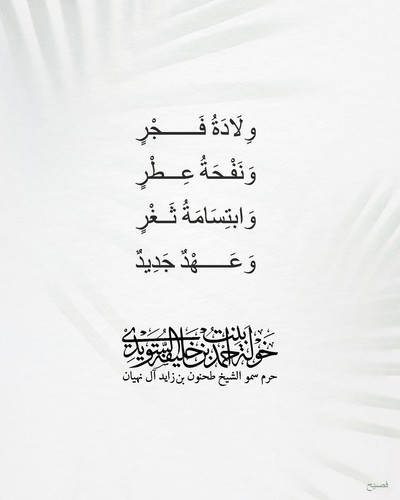 وِلَادَةُ فَـــجْرٍ
وَنَفْحَةُ عِـطْرٍ
وَابتِسَامَةُ ثَـغْرٍ
وَعَـــهْدٌ جَدِيدٌ
خولة بنت أحمد بن خليفة السويدي
حرم سمو الشيخ طحنون بن زايد آل نهيان
فصيح